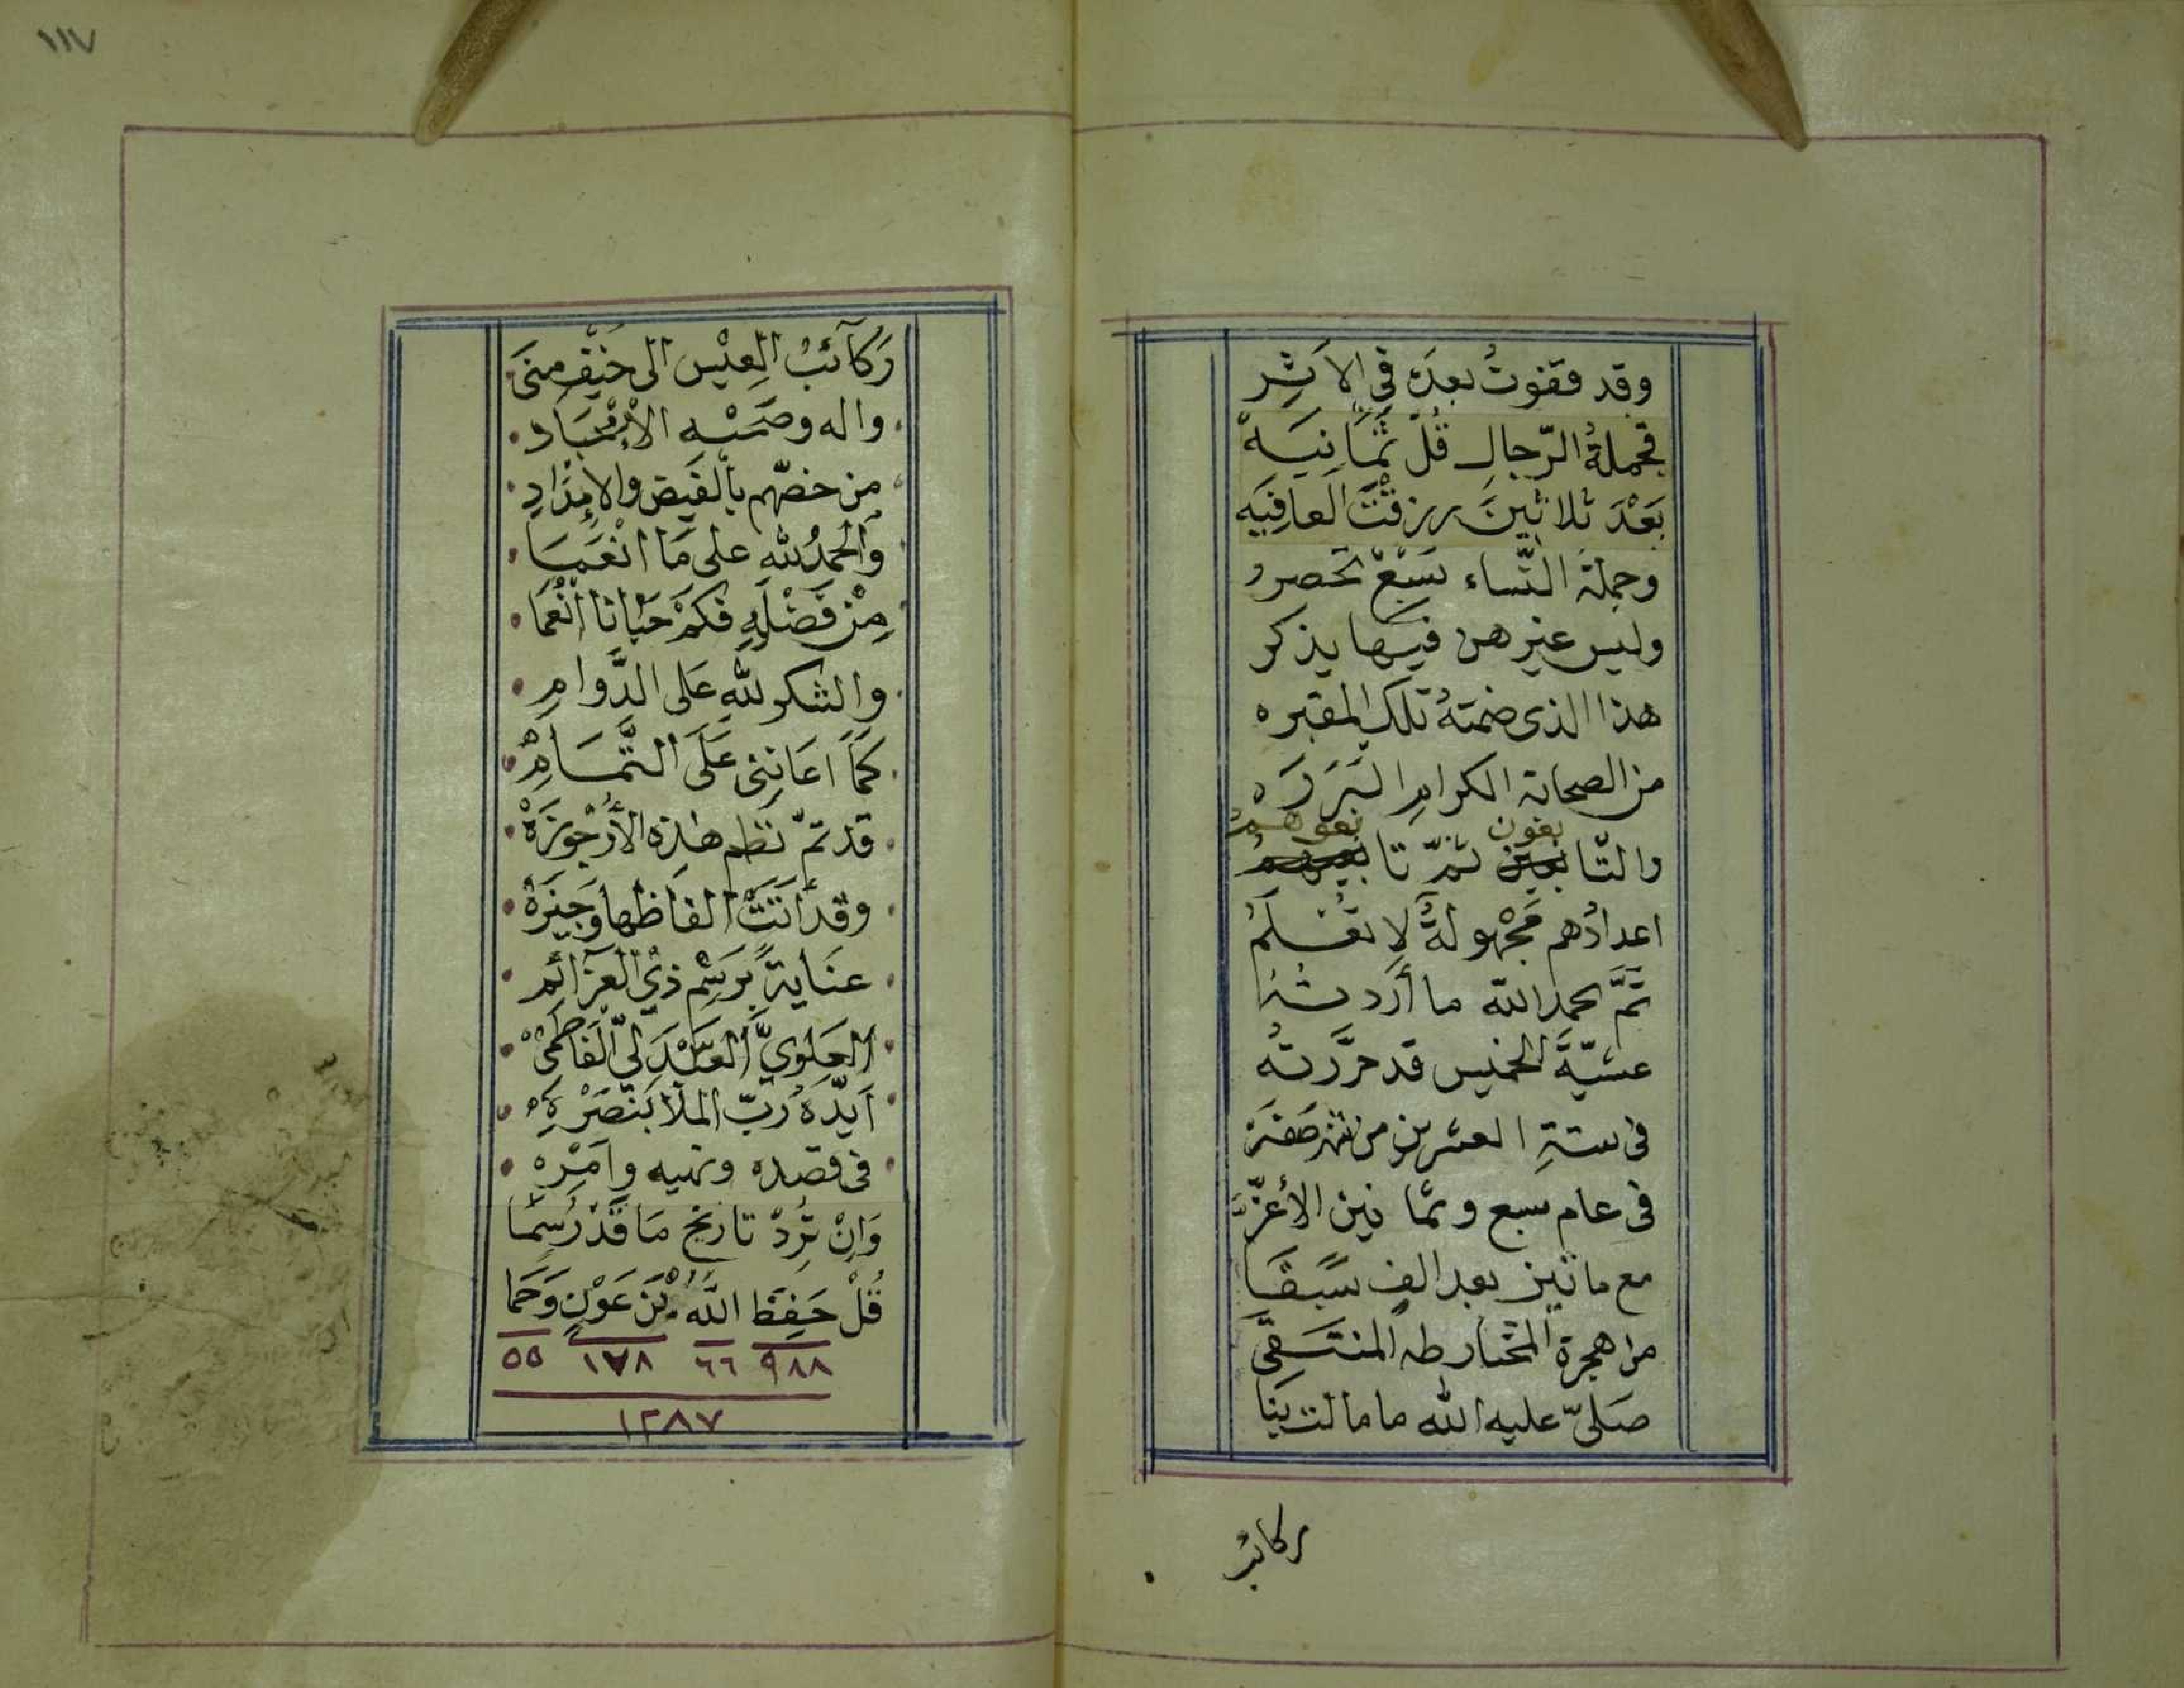 وقد قفوتُ بعدَه في الاَثِر
فجملةُ الرّجالِ قُلْ ثَمَانِيَهْ
بَعْدَ ثلاثينَ رزقْتَ العافِيَه
وجملة النّساء تسْعٌ تحصر
وليس غيرهن فيها يذكر
هذا الذى ضمتهُ تلك المقبره
من الصحابة الكرامِ البَرَرَه
والتّابعون ثمّ تابعوهمُ
اعدادُهم مَجْهولةٌ لا تُعْلَمُ
تَمَّ بحمد الله ما أردتُهُ
عشيّةَ الخميس قد حرَّرتُه
فى ستةِ العشرين من شهر صَفَر
فى عام سبع وثمانين الأغَرّ
مع مائتين بعد الفٍ سَبَقَا
من هجرة المختار طه المنتقَى
صَلىّ عليه الله ما مالت بنا
ركائب
١١٧
رَكآئبُ العِيْس الى خَيْفِ مِنَى
واله وصَحْبِه الاَمْجَاد
من خصّهم بالفَيض والامْدَادِ
وَالحمدُ لله على مَا انْعَمَا
مِنْ فَضْلِهِ فكَمْ حَبَانا انْعُمَا
والشكر لله عَلى الدَّوامِ
كَمَا اعَانِنى عَلَى التَّمَامِ
قد تمّ نظم هذه الأُرْجوزَةْ
وقد أتَتْ الفاظها وَجيْزَةْ
عنَايةً برَسْمِ ذي العزَائم
العَلويِّ العَبْدَلِيّ الفَاطِمىْ
اَيدّهُ رَبّ الملا بنَصْرِهِ
فى قصده ونهيه وامْرِه
وَاِنْ تُرِدْ تاريخ مَا قَدْ رُسِمَا
قُلْ حَفِظَ اللهُ بْنَ عَوْنٍ وَحَما
٩٨٨ ٦٦ ١٧٨ ٥٥
١٢٨٧